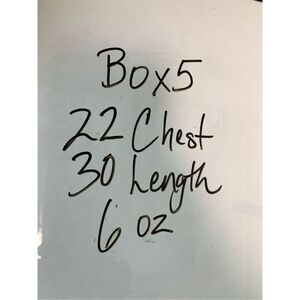 Box5
22 Chest
30 Length
6 oz